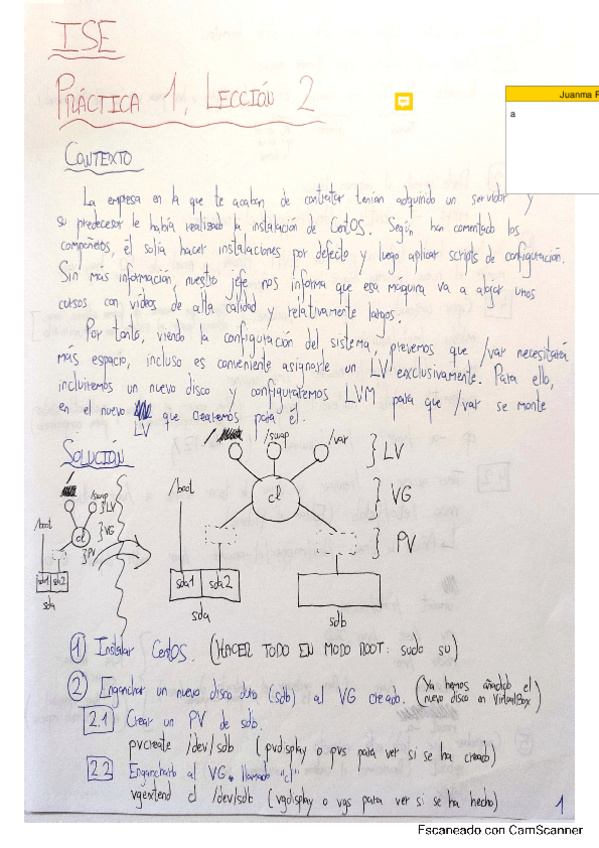 ISE
PRÁCTICA 1, LECCIÓN 2
Juanma
a
CONTEXTO
La empresa en la que te acaban de contratar tenían adquirido un servidor y
su predecesor le había realizado la instalación de CentOS. Según han comentado los
compañeros, él solía hacer instalaciones por defecto y luego aplicar scripts de configuración.
Sin más información, nuestro jefe nos informa que esa máquina va a alojar unos
cursos con vídeos de alta calidad y relativamente largos.
Por tanto, viendo la configuración del sistema, prevemos que /var necesitará
más espacio, incluso es conveniente asignarle un LV exclusivamente. Para ello,
incluiremos un nuevo disco y configuraremos LVM para que /var se monte
en el nuevo LV que crearemos para él.
SOLUCIÓN
/swap
/boot
cl
} LV
} VG
} PV
sda1 sda2
sda
/
/swap
/var
} LV
/boot
cl
} VG
} PV
sda1 sda2
sda
sdb
1 Instalar CentOS. (HACER TODO EN MODO ROOT: sudo su)
2 Enganchar un nuevo disco duro (sdb) al VG creado. (Ya hemos añadido el
nuevo disco en VirtualBox)
2.1 Crear un PV de sdb.
pvcreate /dev/sdb (pvdisplay o pvs para ver si se ha creado)
2.2 Engancharlo al VG llamado "cl"
vgextend cl /dev/sdb (vgdisplay o vgs para ver si se ha hecho)
1
Escaneado con CamScanner